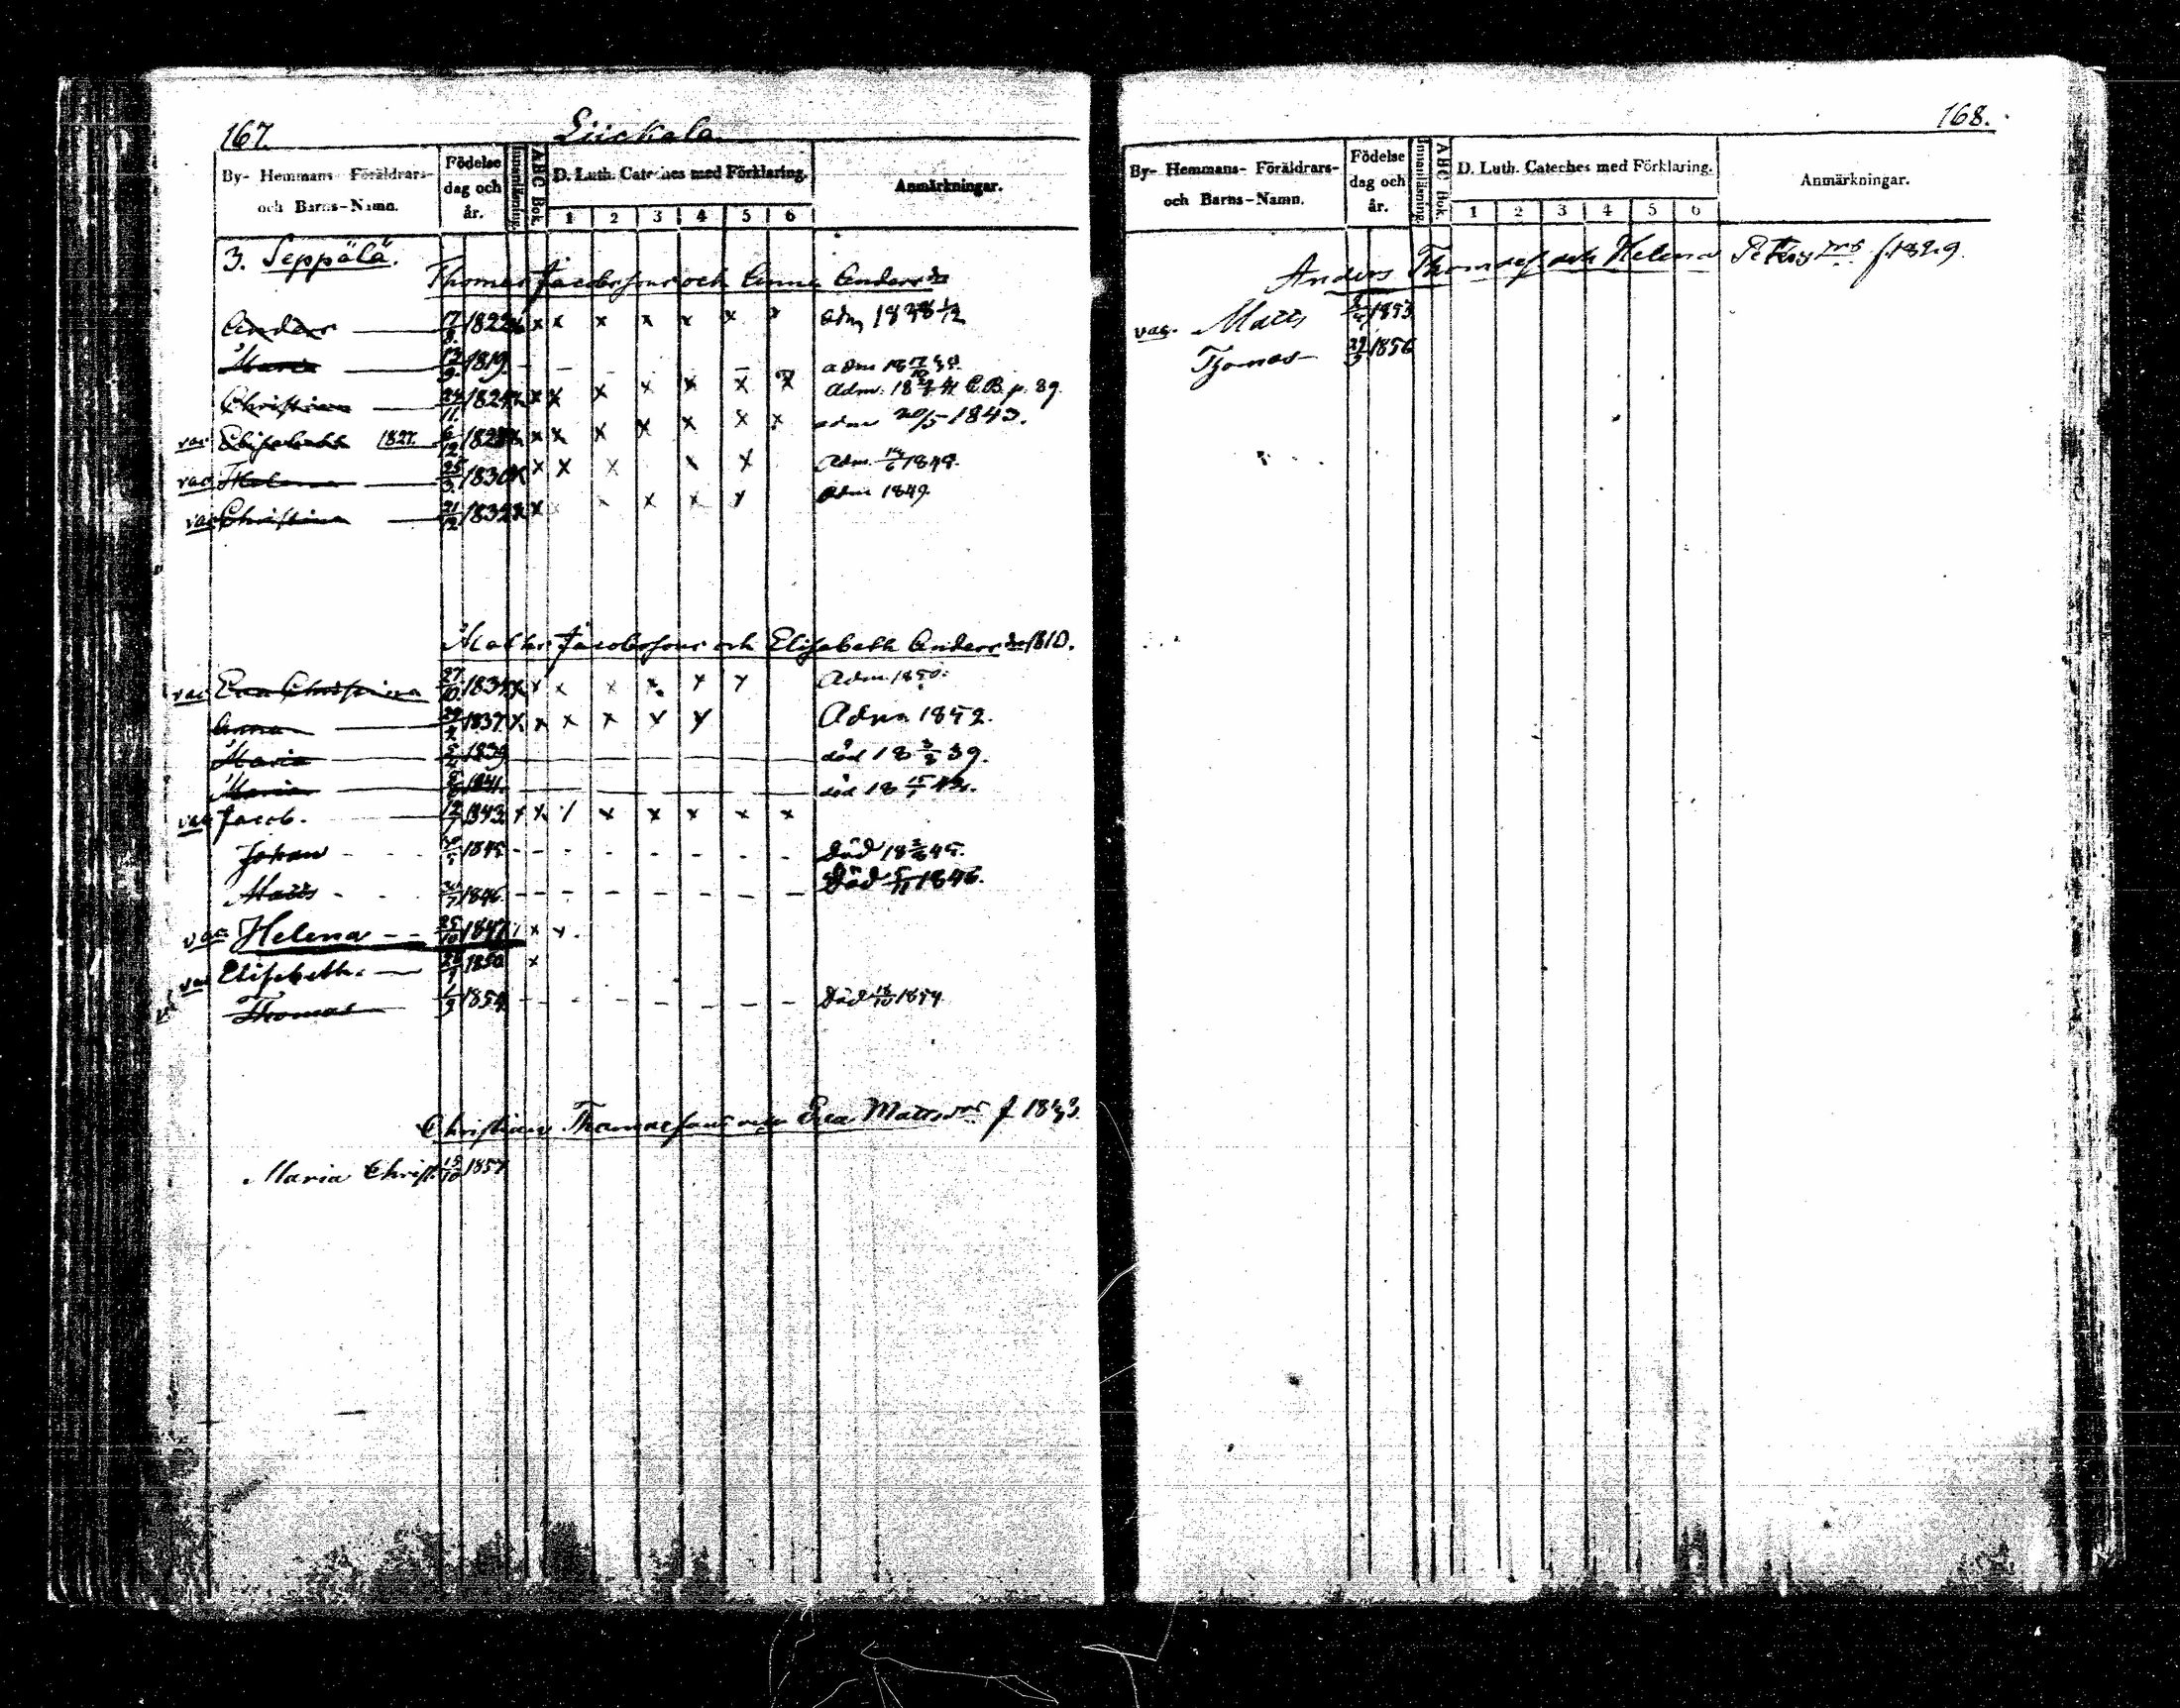 167. Liuckala
By- Hemmans- Föräldrars- och Barns-Namn. Födelse dag och år. Innanläsning. ABC Bok. D. Luth. Cateches med Förklaring. 1 2 3 4 5 6 Anmärkningar.
3. Seppälä.
Thomas Jacobsons och Anna Anders dr
Anders 17/8. 1822 x x x x x x x adm 1838
Maria 13/9. 1819. adm
Christian 24/11. 182 x x x x x x x Adm. 18 41 C.B. p. 89.
vac Elisabeth 1827. 6/12 182 x x x x x x x adm 20/5 1843.
vac Helena 25/3. 1830 x x x x x x Adm. 14/6 1848.
vac Christina 21/12 1832 x x x x x x adm 1849.
Matts Jacobssons och Elisabeth Anders dr 1810.
vac Eva Christina 27/10. 1834 x x x x x x x Adm. 1850.
Anna 1837. x x x x x x Adm 1852.
Maria 1839 död 18 3/3 39.
Maria 1841. död 18
vac Jacob. 1843. x x / x x x x x
Johan 1845 Död 18 45.
Matts 1846. Död 5/11 1846.
vac Helena 25/10 1847 x x
vac Elisabeth. 1850 x
Thomas 1/9 1854 Död 18/10 1854
Christian Thomassons och Eva Matts dr f 1833.
Maria Christ. 15/10 1857
168.
By- Hemmans- Föräldrars- och Barns-Namn. Födelse dag och år. Innanläsning. ABC Bok. D. Luth. Cateches med Förklaring. 1 2 3 4 5 6 Anmärkningar.
Anders Thomass och Helena Petters f. 1829.
vac. Matts 1853
Thomas 1856